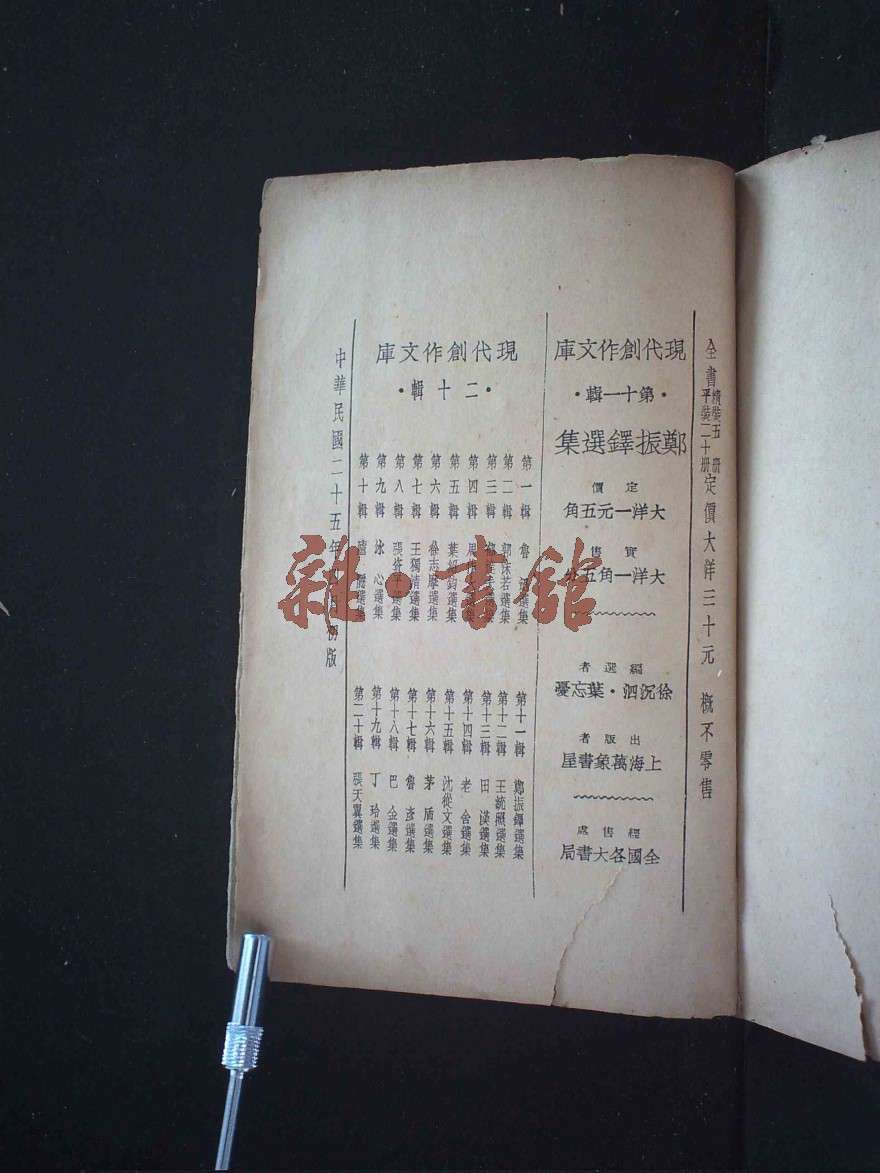 全書精裝五冊平裝二十册定價大洋三十元 概不零售
現代創作文庫
・第十一輯・
鄭振鐸選集
定價
大洋一元五角
實售
大洋一角五分
編選者
徐沉泗・葉忘憂
出版者
上海萬象書屋
經售處
全國各大書局
現代創作文庫
・二十輯・
第一輯 魯 選集
第二輯 郭沫若選集
第三輯 選集
第四輯 選集
第五輯 葉紹鈞選集
第六輯 徐志摩選集
第七輯 王獨清選集
第八輯 張資平選集
第九輯 冰心選集
第十輯 廬 選集
第十一輯 鄭振鐸選集
第十二輯 王統照選集
第十三輯 田漢選集
第十四輯 老舍選集
第十五輯 沈從文選集
第十六輯 茅盾選集
第十七輯 魯彥選集
第十八輯 巴金選集
第十九輯 丁玲選集
第二十輯 張天翼選集
中華民國二十五年四月初版
雜・書館